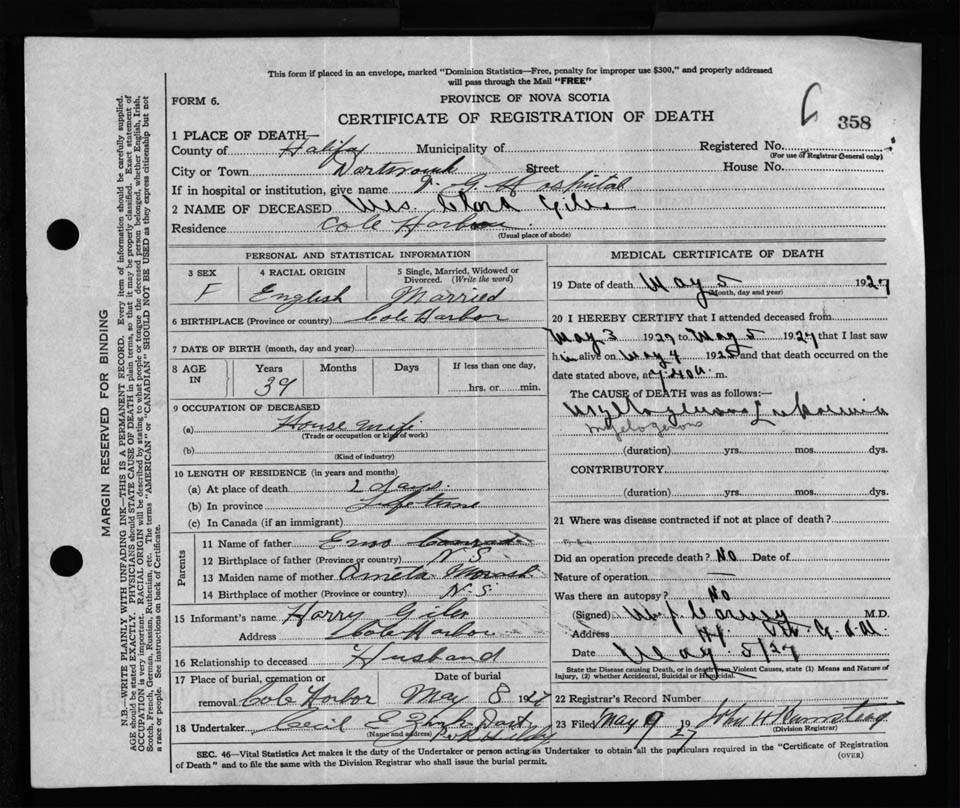 This form if placed in an envelope, marked "Dominion Statistics—Free, penalty for improper use $300," and properly addressed
will pass through the Mail "FREE"
FORM 6.
PROVINCE OF NOVA SCOTIA
358
CERTIFICATE OF REGISTRATION OF DEATH
1 PLACE OF DEATH—
County of Halifax Municipality of Registered No.
(For use of Registrar General only)
City or Town Dartmouth Street House No.
If in hospital or institution, give name Hospital
2 NAME OF DECEASED Mrs. Giles
Residence Cole Harbour
(Usual place of abode)
PERSONAL AND STATISTICAL INFORMATION
3 SEX 4 RACIAL ORIGIN 5 Single, Married, Widowed or
Divorced. (Write the word)
F English Married
6 BIRTHPLACE (Province or country) Cole Harbor
7 DATE OF BIRTH (month, day and year)
8 AGE IN Years Months Days If less than one day,
39 hrs. or min.
9 OCCUPATION OF DECEASED
(a) House wife
(Trade or occupation or kind of work)
(b)
(Kind of industry)
10 LENGTH OF RESIDENCE (in years and months)
(a) At place of death 2 days
(b) In province Life time
(c) In Canada (if an immigrant)
Parents
11 Name of father
12 Birthplace of father (Province or country) N S
13 Maiden name of mother
14 Birthplace of mother (Province or country) N. S
15 Informant's name Harry Giles
Address Cole Harbor
16 Relationship to deceased Husband
17 Place of burial, cremation or Date of burial
removal Cole Harbor May 8 1927
18 Undertaker Cecil E
(Name and address)
MEDICAL CERTIFICATE OF DEATH
19 Date of death May 5 1927
(Month, day and year)
20 I HEREBY CERTIFY that I attended deceased from
May 3 1927 to May 5 1927 that I last saw
h alive on May 4 192 and that death occurred on
date stated above, at 7.40 a. m.
The CAUSE of DEATH was as follows:—
Myelogenous Leukaemia
Myelogenous
(duration) yrs. mos. dys.
CONTRIBUTORY
(duration) yrs. mos. dys.
21 Where was disease contracted if not at place of death?
Did an operation precede death? No Date of
Nature of operation —
Was there an autopsy? No
(Signed) M.D.
Address
Date May 5/27
State the Disease causing Death, or in death from Violent Causes, state (1) Means and Nature of
Injury, (2) whether Accidental, Suicidal or Homicidal.
22 Registrar's Record Number
23 Filed May 9 1927 John H
(Division Registrar)
SEC. 46—Vital Statistics Act makes it the duty of the Undertaker or person acting as Undertaker to obtain all the particulars required in the "Certificate of Registration
of Death" and to file the same with the Division Registrar who shall issue the burial permit.
(OVER)
MARGIN RESERVED FOR BINDING
N.B.—WRITE PLAINLY WITH UNFADING INK—THIS IS A PERMANENT RECORD. Every item of information should be carefully supplied.
AGE should be stated EXACTLY. PHYSICIANS should STATE CAUSE OF DEATH in plain terms, so that it may be properly classified. Exact statement of
OCCUPATION is very important. RACIAL ORIGIN will be described by stating to what people or tongue the deceased person belonged, whether English, Irish,
Scotch, French, German, Russian, Ruthenian, etc. The terms "AMERICAN" or "CANADIAN" SHOULD NOT BE USED as they express citizenship but not
a race or people. See instructions on back of Certificate.